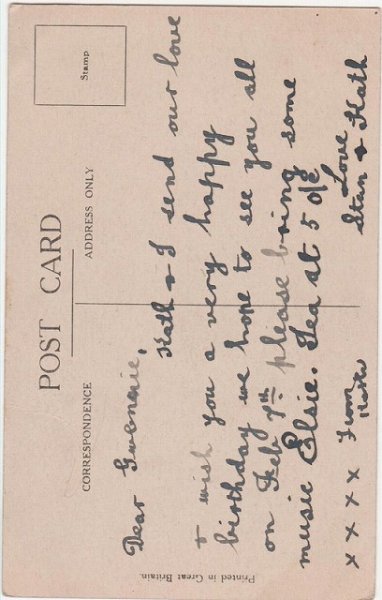 POST CARD
CORRESPONDENCE
ADDRESS ONLY
Stamp
Dear Gwennie,
Kath & I send our love
& wish you a very happy
birthday we hope to see you all
on Feb 7th please bring some
music Elsie. Tea at 5 o/c
Love
Stan & Kath
x x x x From
Printed in Great Britain.